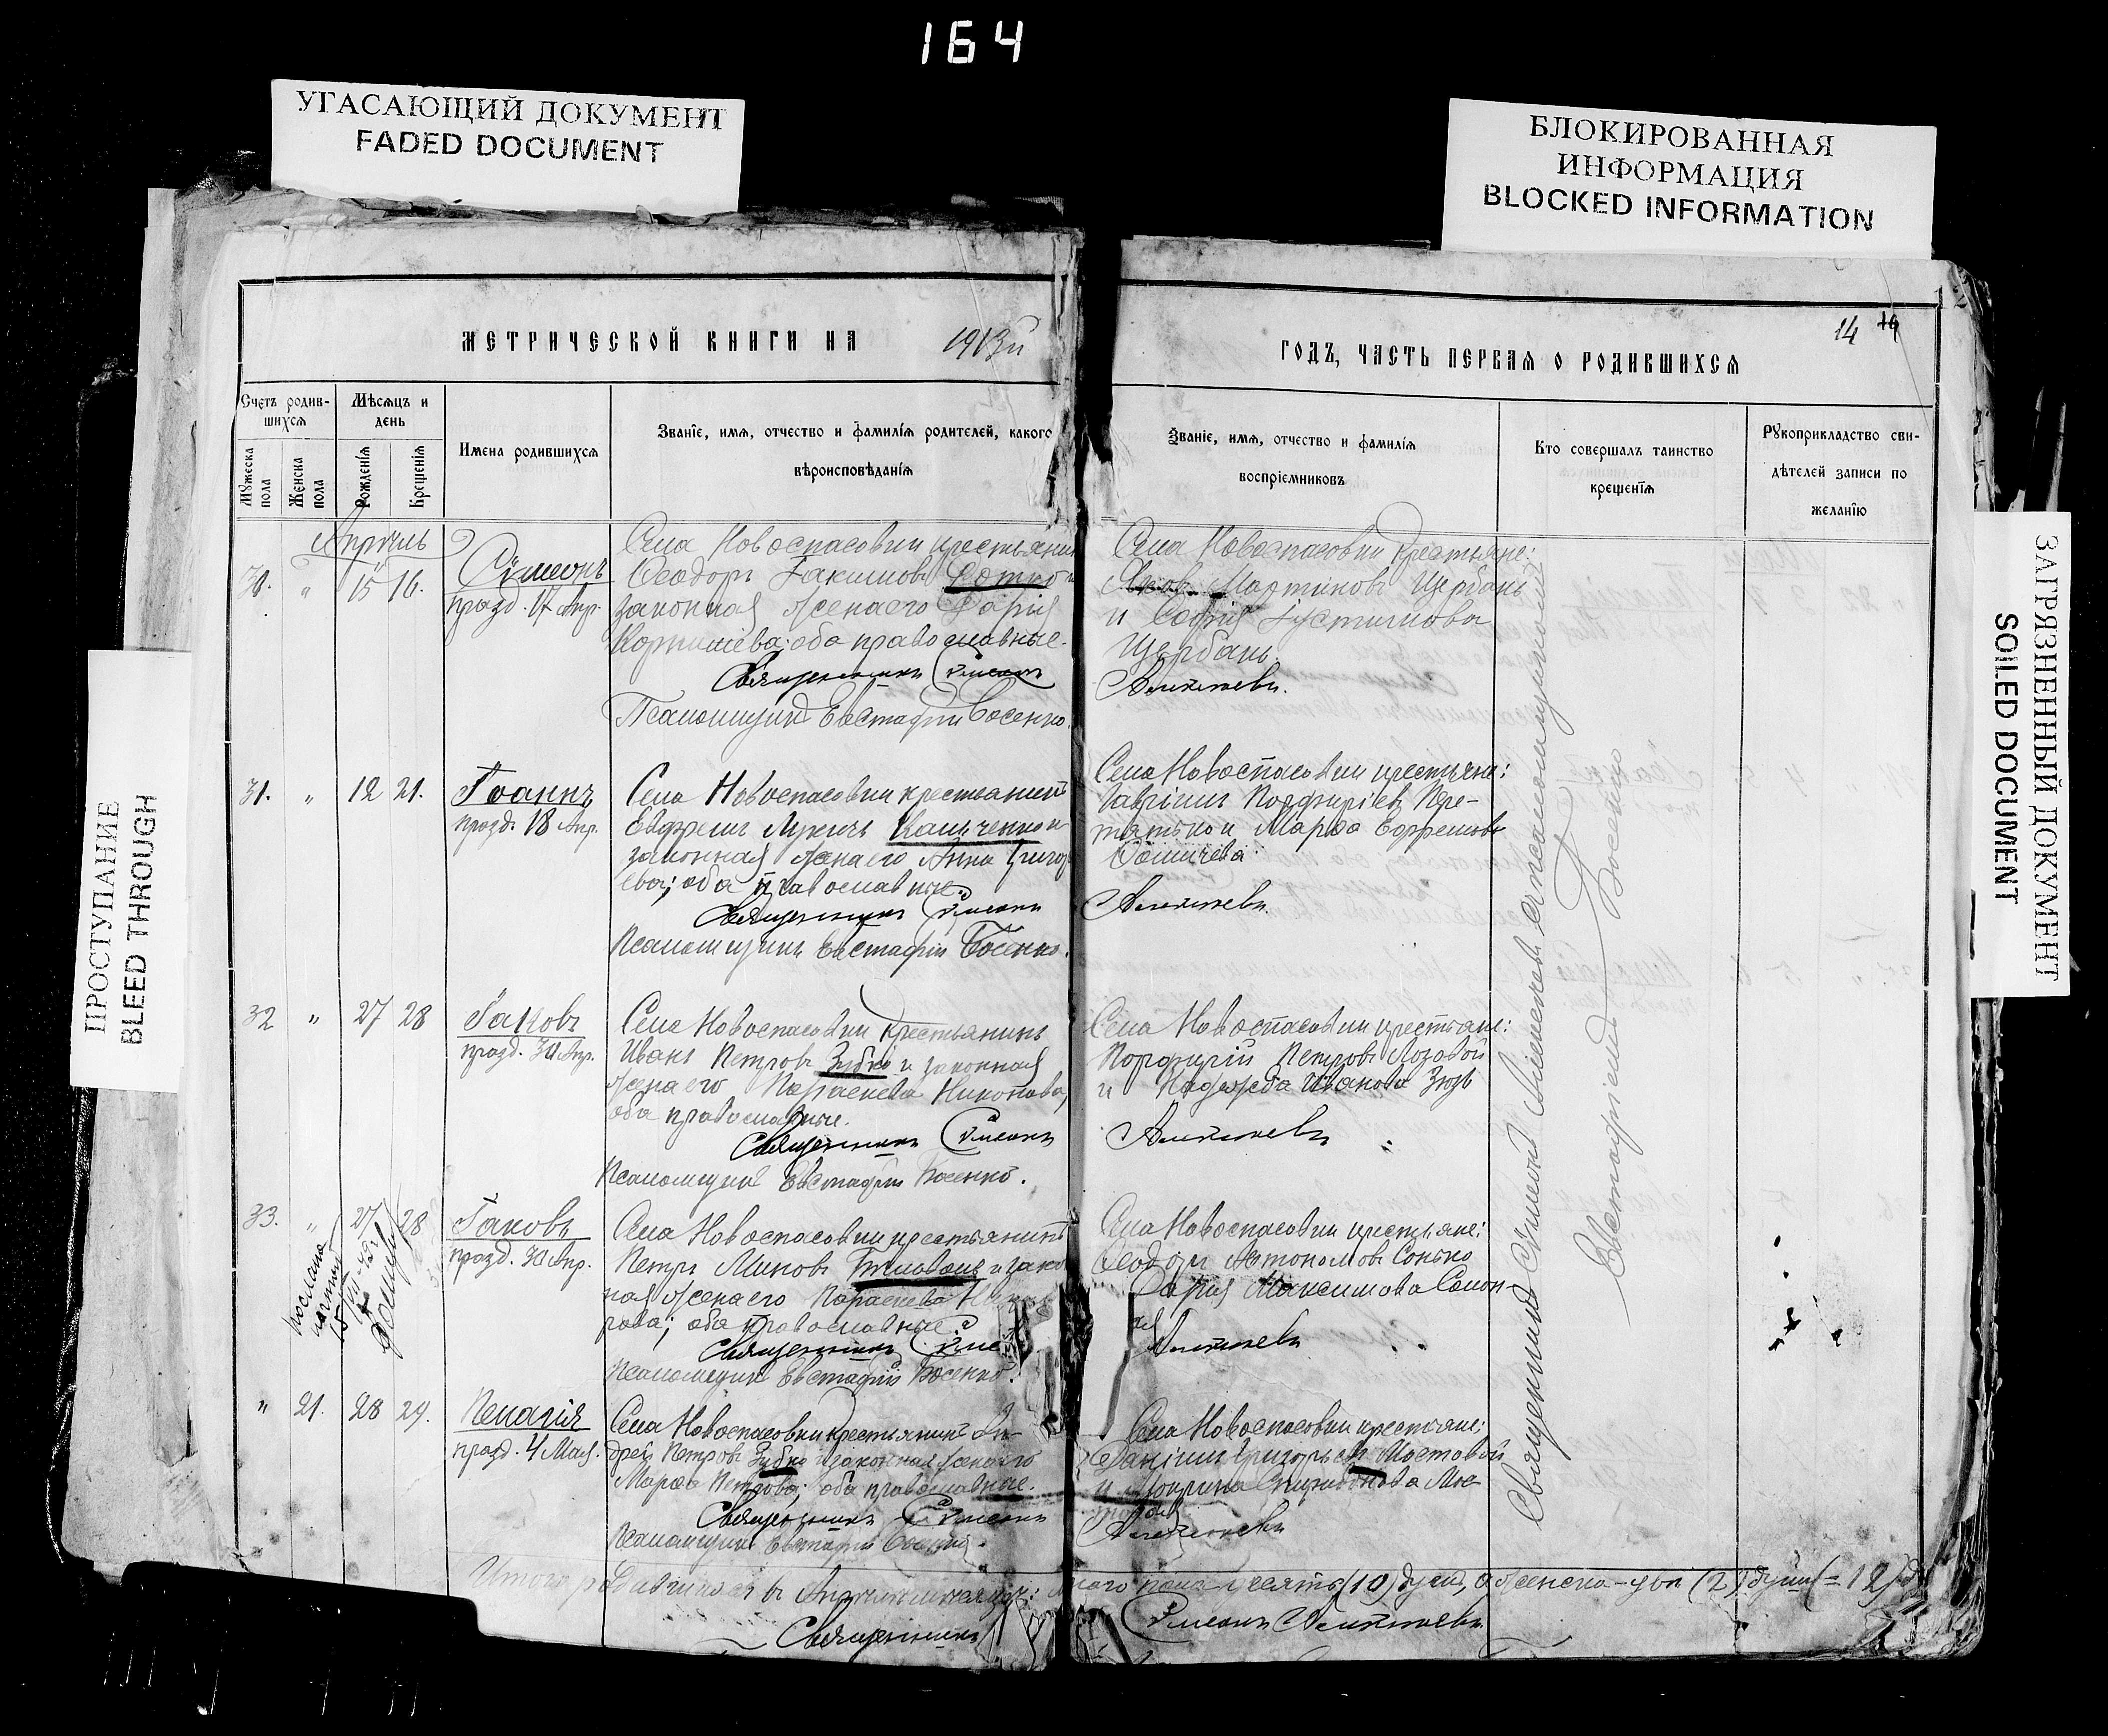 164
УГАСАЮЩИЙ ДОКУМЕНТ
FADED DOCUMENT
БЛОКИРОВАННАЯ
ИНФОРМАЦИЯ
BLOCKED INFORMATION
ПРОСТУПАНИЕ
BLEED THROUGH
ЗАГРЯЗНЕННЫЙ ДОКУМЕНТ
SOILED DOCUMENT
МЕТРИЧЕСКОЙ КНИГИ НА 1913й
ГОДЪ, ЧАСТЬ ПЕРВАЯ О РОДИВШИХСЯ
14
Счетъ родив-
шихся
Мѣсяцъ и
день
Мужеска пола
Женска пола
Рожденія
Крещенія
Имена родившихся
Званіе, имя, отчество и фамилія родителей, какого
вѣроисповѣданія
Званіе, имя, отчество и фамилія
воспріемниковъ
Кто совершалъ таинство
крещенія
Рукоприкладство сви-
дѣтелей записи по
желанію
Апрѣль
30. " 15 16.
Сѵмеонъ
празд. 17 Апр.
Села Новоспасовки крестьянинъ
Ѳеодоръ Іакимовъ
законная жена его Дарія
оба православные.
Священникъ Сѵмеонъ
Псаломщикъ Евстафій Босенко.
Села Новоспасовки крестьяне:
Яковъ Мартиновъ Щербань
и Софія Іустинова
Щербань.
Алексѣевъ.
31. " 12 21.
Іоаннъ
празд. 18 Апр.
Села Новоспасовки крестьянинъ
Евфремъ Лукичъ Кальченко и
законная жена его Анна Григорь
ева; оба православные.
Священникъ Сѵмеонъ
Псаломщикъ Евстафій Босенко.
Села Новоспасовки крестьяне:
Гавріилъ Порфиріевъ Пере-
тятько и Марѳа Ефремова
Алексѣевъ.
32 " 27 28
Іаковъ
празд. 30 Апр.
Села Новоспасовки крестьянинъ
Иванъ Петровъ Зубко и законная
жена его Параскева Никонова,
оба православные.
Священникъ Сѵмеонъ
Псаломщикъ Евстафій Босенко.
Села Новоспасовки крестьяне:
Порфирій Петровъ Лозовой
и Надежда Иванова Зюзь
Алексѣевъ
33. " 27 28
Іаковъ
празд. 30 Апр.
Села Новоспасовки крестьянинъ
Петръ Миновъ и закон
ная жена его Параскева
оба православные.
Священникъ Сѵме
Псаломщикъ Евстафій Босенко.
Села Новоспасовки крестьяне:
Ѳеодоръ Автономовъ Сонько
Дарія Максимова
Алексѣевъ
" 21. 28 29.
Пелагія
празд. 4 Мая.
Села Новоспасовки крестьянинъ Ан-
дрей Петровъ Зубко и законная жена его
Марѳа Петрова; оба православные.
Священникъ Сѵмеонъ
Псаломщикъ Евстафій Босенко.
Села Новоспасовки крестьяне:
Даніилъ Григорьевъ Мостовой
и Спиридонова Мос
Алексѣевъ
Священникъ Сѵмеонъ Алексѣевъ съ псаломщикомъ
Евстафіемъ Босенко
Итого родилось въ Апрѣлѣ мѣсяцѣ: пола десять (10) душъ, а женска - двѣ (2) души (=12)
Священникъ Сѵмеонъ Алексѣевъ